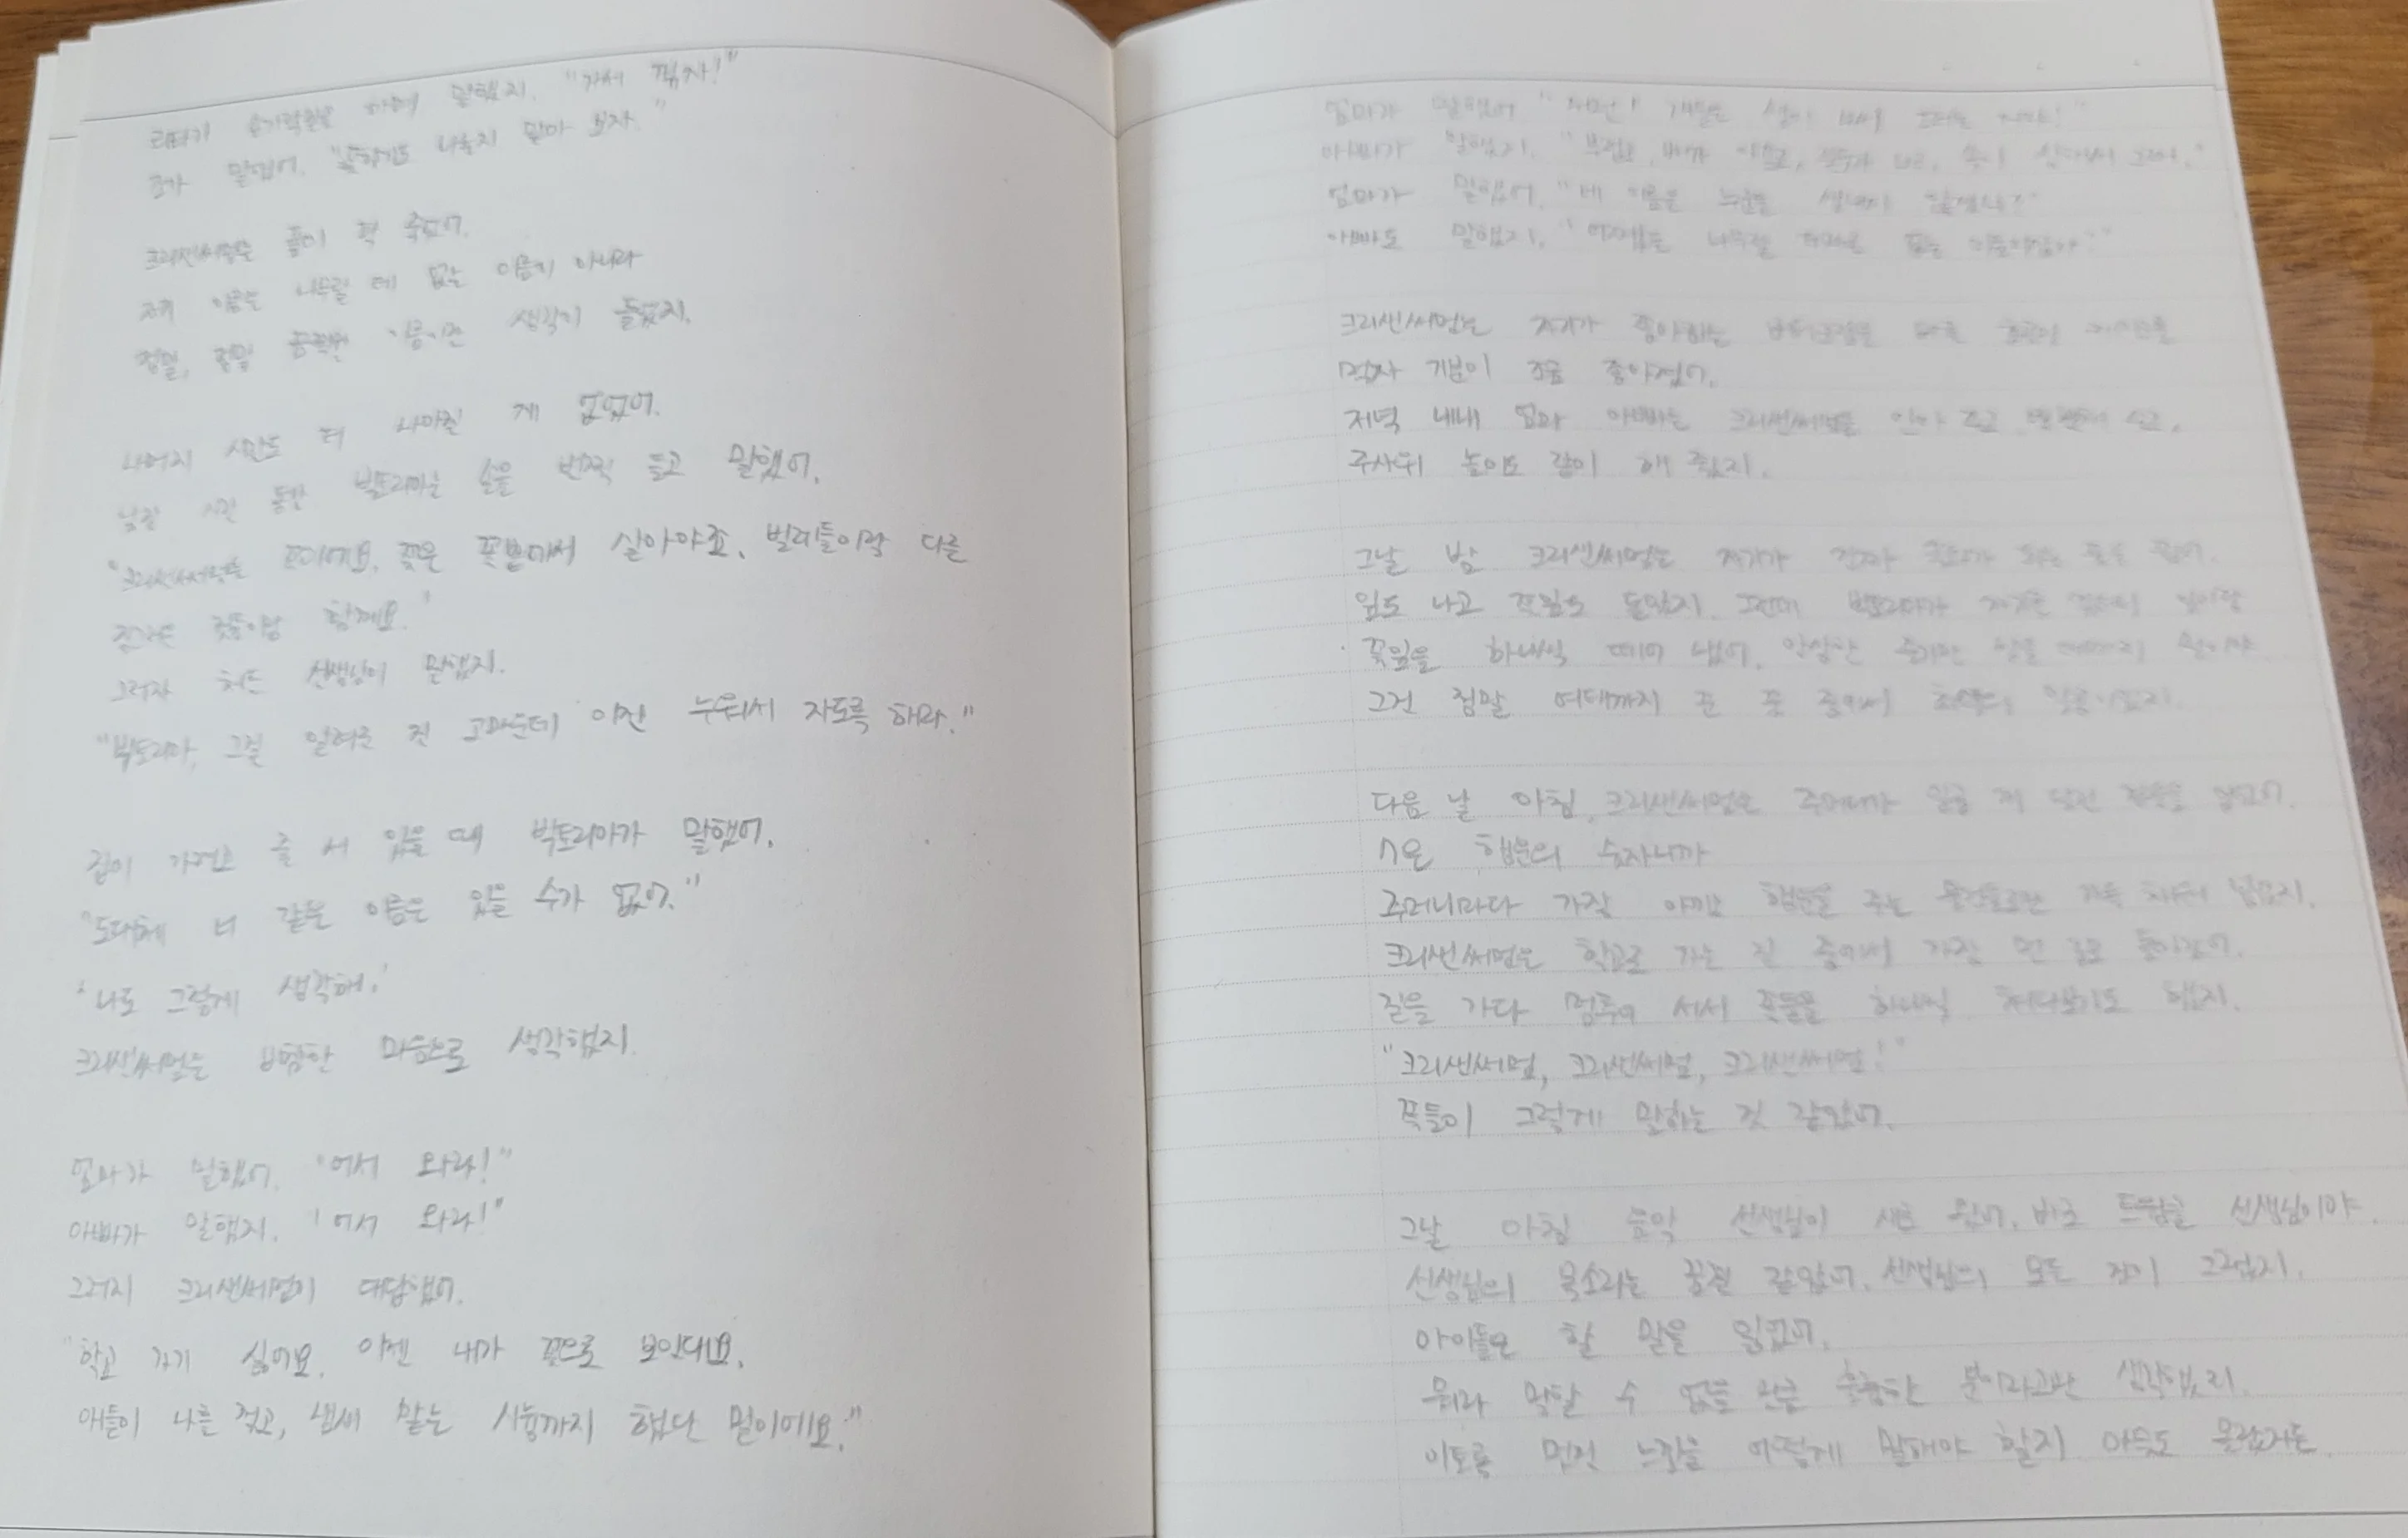 리타가 손가락질을 하며 말했지. "가서 꺾자!"
조가 말했어. "꽃향기도 나는지 맡아 보자."
크리샌써멈은 풀이 팍 죽었어.
자기 이름은 나무랄 데 없는 이름이 아니라
정말, 정말 끔찍한 이름이란 생각이 들었지.
나머지 시간도 더 나아질 게 없었어.
낮잠 시간 동안 빅토리아는 손을 번쩍 들고 말했어.
"크리샌써멈은 꽃이에요. 꽃은 꽃밭에서 살아야죠. 벌레들이랑 다른
꽃들이랑 함께요."
그러자 선생님이 말했지.
"빅토리아, 그걸 일러준 건 고마운데 이젠 누워서 자도록 해라."
집에 가려고 줄 서 있을 때 빅토리아가 말했어.
"도대체 너 같은 이름은 있을 수가 없어."
'나도 그렇게 생각해.'
크리샌써멈은 비참한 마음으로 생각했지.
엄마가 말했어. "어서 와라!"
아빠가 말했지. "어서 와라!"
그러자 크리샌써멈이 대답했어.
"학교 가기 싫어요. 이젠 내가 꽃으로 보인대요.
애들이 나를 꺾고, 냄새 맡는 시늉까지 했단 말이에요."
엄마가 말했어 "저런! 걔들은 샘이 나서 그러는 거야!"
아빠가 말했지. "부럽고, 배가 아프고,
엄마가 말했어. "네 이름을 누군들 샘내지 않겠니?"
아빠도 말했지. "어쨌든 나무랄 데 없는 이름이잖아."
크리샌써멈은 자기가 좋아하는
먹자 기분이 조금 좋아졌어.
저녁 내내 엄마 아빠는 크리샌써멈을 안아 주고 맞춰 주고,
주사위 놀이도 같이 해 줬지.
그날 밤 크리샌써멈은 자기가 진짜 국화가 되는 꿈을 꿨어.
잎도 나고 꽃잎도 돋았지. 그런데 빅토리아가 잎이랑
꽃잎을 하나씩 떼어 냈어. 앙상한 줄기만 남을 때까지 말이야.
그건 정말 여태까지 꾼 꿈 중에서 최악의 악몽이었지.
다음 날 아침, 크리샌써멈은 주머니가 일곱 개 달린 옷을 입었어.
7은 행운의 숫자니까
주머니마다 가장 아끼고 행운을 주는 물건들로만 가득 채워 넣었지.
크리샌써멈은 학교로 가는 길 중에서 가장 먼 길로 돌아갔어.
길을 가다 멈추어 서서 꽃들을 하나씩 쳐다보기도 했지.
"크리샌써멈, 크리샌써멈, 크리샌써멈!"
꽃들이 그렇게 말하는 것 같았어.
그날 아침 음악 선생님이 새로 왔어. 바로 트윙클 선생님이야.
선생님의 목소리는 꿈결 같았어. 선생님의 모든 것이 그랬지.
아이들은 할 말을 잃었어.
뭐라 말할 수 없을 만큼 훌륭한 분이라고만 생각했지.
이토록 멋진 느낌을 어떻게 말해야 할지 아무도 몰랐거든